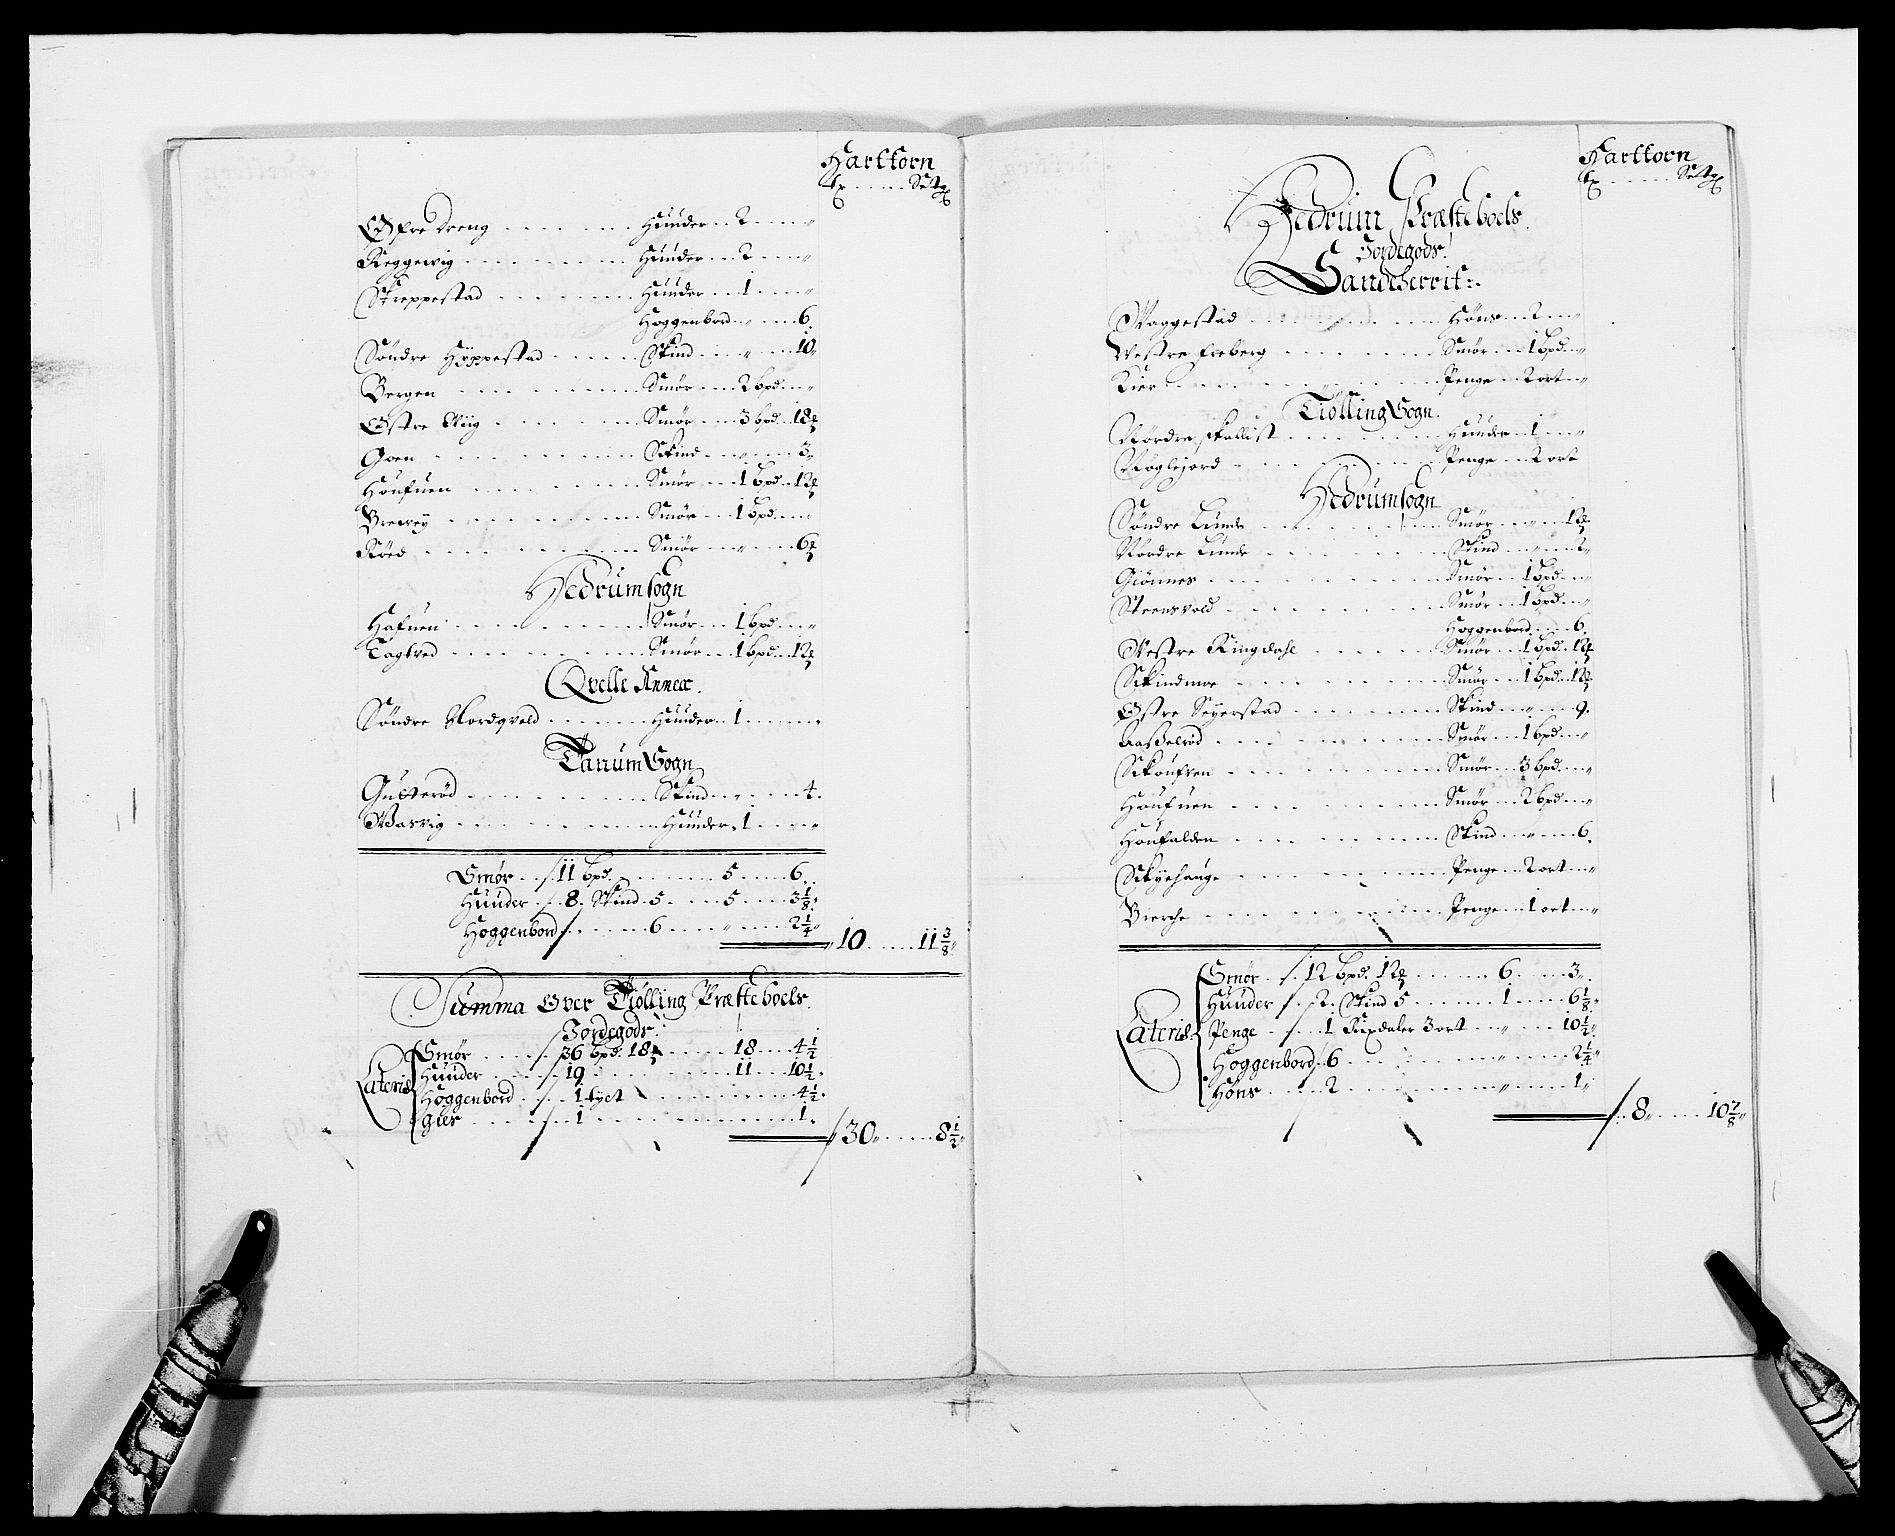 Harttorn
tr ..... Settg
Øfre Dreng ....... Huuder 2 ... "
Keggewig ......... Huuder 2 ... "
Skreppestad ....... Huuder 1 ... "
Hoggenbord " .... 6.
Søndre Hyppestad ..... Skind ... " .... 10 "
Bergen ......... Smør ... 2 bpd ... "
Østre Wiig ....... Smør ... 3 bpd. 18 ℔
Goen ......... Skind ... " .... 3 "
Houfuen ......... Smør ... 1 bpd. 12 ℔
Brewey ......... Smør ... 1 bpd ... "
Röed ......... Smør ... " .... 6 ℔
Hedrum sogn
Hafuen ......... Smør ... 1 bpd ... "
Tagtved ......... Smør ... 1 bpd. 12 ℔
Qvelle Annex.
Søndre Nordqveld ...... Huuder 1 .... "
Tanum Sogn
Gutterød ......... Skind ... " .... 4.
Wasvig ......... Huuder 1 .... "
Smør ... 11 bpd. ....... 5 .... 6.
Huuder . 8. Skind 5 .... 5 .... 3 1/8 "
Hoggenbord ..... 6 .... " .... 2 1/4 "
" 10 ..... 11 3/8 "
Summa Over Tiølling Præsteboels
Jordegods.
Lateris Smør ....... 36 bpd. 18 ℔ ..... 18 ... 4 1/2
Huuder ...... 19 ........ 11 ... 10 1/2 "
Hoggenbord .... 1 tylt ........ 4 1/2 "
Gier ....... 1 ........ 1 "
" 30 " ..... 8 1/2 "
Harttorn
tr ..... Settg
Hedrum Præsteboels
Jordegods.
Sandeherrit:
Waggestad ......... Høns ... 2 ... "
Vestre Freberg ....... Smør ... 1 bpd ... "
Kier ......... Penge ... 2 ort ... "
Tiølling Sogn.
Nordre Skallist ....... Huuder 1 ... "
Nøglejord ......... Penge ... 2 ort
Hedrum sogn
Søndre Lunde ....... Smør ... " ... 12 ℔
Nordre Lunde ....... Skind ... " ... 2 "
Giönnes ......... Smør ... 1 bpd ... "
Steensvold ......... Smør ... 1 bpd ... "
Hoggenbord ... 6.
Vestre Ringdahl ...... Smør ... 1 bpd. 12 ℔
Skindmoe ......... Smør ... 1 bpd. 12 ℔
Østre Seyerstad ....... Skind ... " ... 9.
Aasselrød ......... Smør ... 1 bpd ... "
Skoufven ......... Smør ... 3 bpd ... "
Houfuen ......... Smør ... 2 bpd ... "
Houfalden ......... Skind ... " ... 6.
Skyehauge ......... Penge ... 2 ort ... "
Bierche ......... Penge ... 1 ort ... "
Lateris Smør ... 12 bpd. 12 ℔ ..... 6 .... 3 "
Huuder . 2. Skind 5 ..... 1 .... 6 1/8 "
Penge ... 1 Rixdaler 3 ort ... " ... 10 1/2 "
Hoggenbord 6 ....... " ... 2 1/4 "
Høns ... 2 ....... " ... 1 "
8 " ..... 10 7/8 "